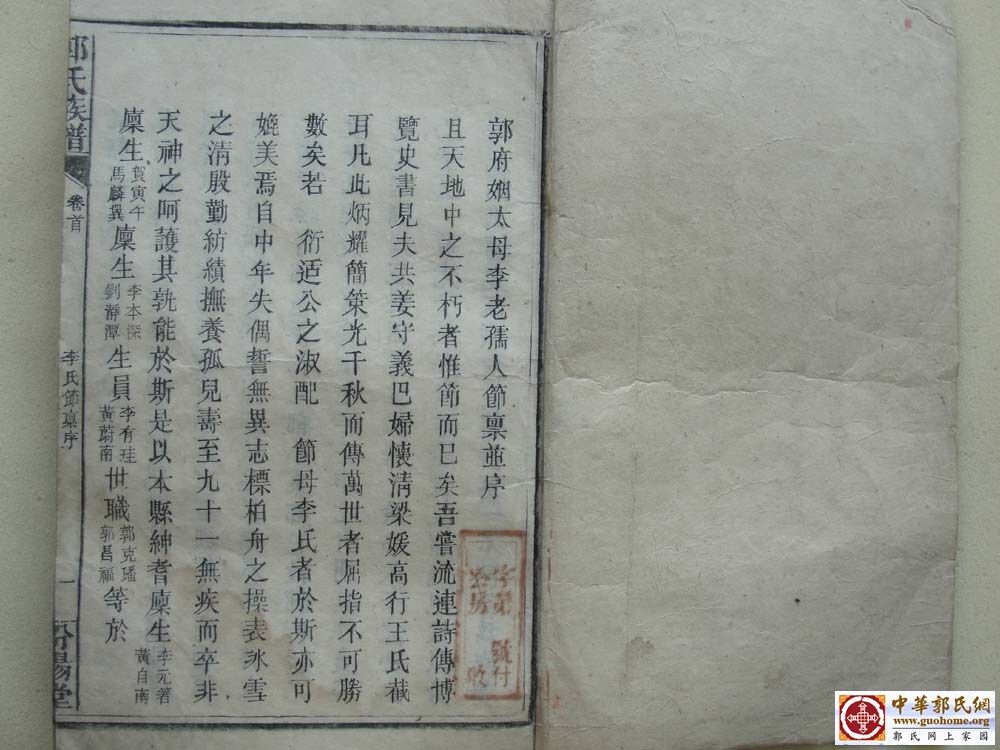 郭府姻太母李老孺人節稟並序
且天地中之不朽者惟節而已矣吾嘗流連詩傳博
覽史書見夫共姜守義巴婦懷清梁媛高行王氏截
耳凡此炳耀簡策光千秋而傳萬世者屈指不可勝
數矣若 衍适公之淑配 節母李氏者於斯亦可
媲美焉自中年失偶誓無異志標柏舟之操表冰雪
之清殷勤紡績撫養孤兒壽至九十一無疾而卒非
天神之呵護其孰能於斯是以本縣紳耆廩生李元著黃自南
廩生賀寅午馬麟撰廩生李本深劉瀞潭生員李有珪黃蔚南世職郭克璠郭昌福等於
郭氏族譜
卷首
李氏節稟序
一
汾陽堂
字第 號付
收
中華郭氏網
www.guohome.org
郭氏网上家园